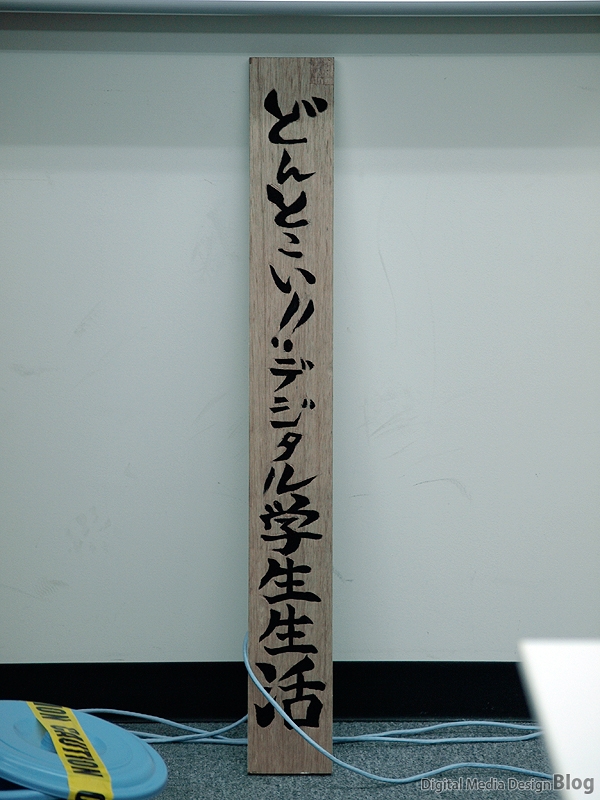 どんとこい!!デジタル学生生活
CAUTION
Digital Media Design Blog